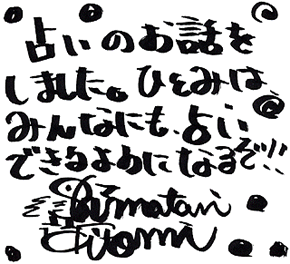 占いのお話を
しました。ひとみは、
みんなにも、占い
できるようになるぞ!!